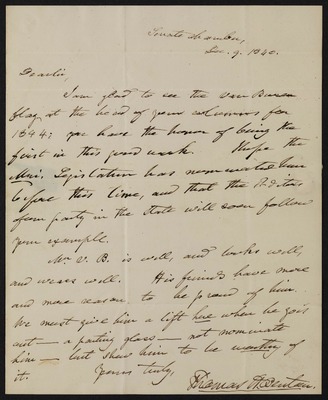 Senate Chamber,
Dec. 9. 1840.
Dear Sir,
I am glad to see the Van Buren
flag at the head of your columns for
1844; you have the honor of being the
first in this good work. I hope the
Legislature has nominated him
before this time, and that the Editors
of our party in the State will soon follow
your example.
Mr. V. B. is well, and looks well,
and wears well. His friends have more
and more reason to be proud of him.
We must give him a lift here when he goes
out — a parting glass — not nominate
him — but shew him to be worthy of
it. Yours truly,
Thomas H. Benton.